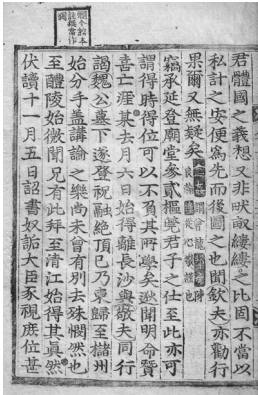 君體國之義想又非畎畝縷縷之比固不當以
私計之安便爲先而後圖之也聞欽夫亦勸行
果爾又無疑矣
竊承延登廟堂參貳樞筦君子之仕至此亦可
謂得時得位可以不負其所學矣逖聞明命賛
喜亡涯某去月六日始得離長沙與敬夫同行
謁魏公墓下遂登祝融絶頂已乃東歸至櫧州
始分手盖講論之樂尚未曾有別去殊惘然也
至醴陵始微聞兄有此拜至清江始得其眞然
伏讀十一月五日詔書奴詬大臣豕視庶位甚